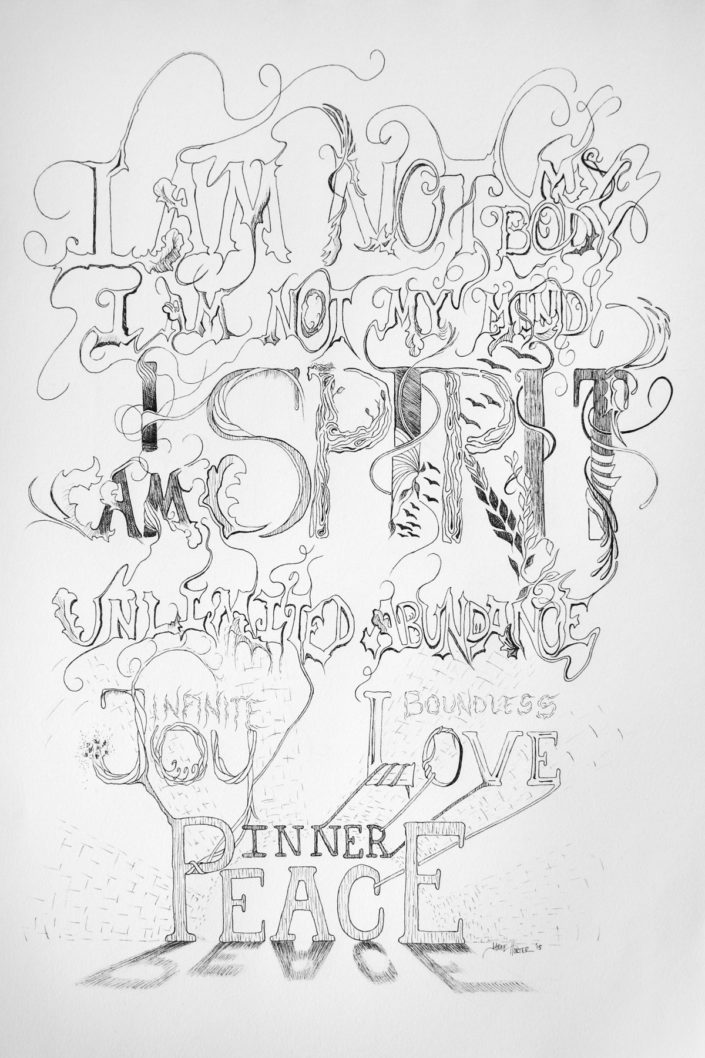 I AM NOT MY
BODY
I AM NOT MY MIND
I AM SPIRIT
UNLIMITED ABUNDANCE
INFINITE
JOY
BOUNDLESS
LOVE
INNER
PEACE